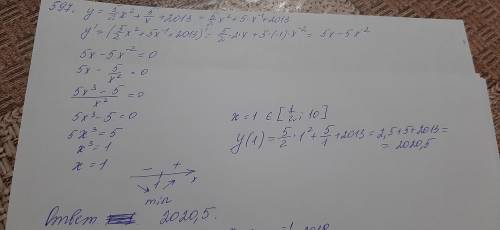 597. y = 5/2 x² + 5/x + 2013 = 5/2 x² + 5·x⁻¹ + 2013
y' = (5/2 x² + 5x⁻¹ + 2013)' = 5/2·2·x + 5·(-1)·x⁻² = 5x - 5x⁻²
5x - 5x⁻² = 0
5x - 5/x² = 0
(5x³ - 5)/x² = 0
5x³ - 5 = 0
5x³ = 5
x³ = 1
x = 1
- + x
1
min
x = 1 ∈ [1/2; 10]
y(1) = 5/2 · 1² + 5/1 + 2013 = 2,5 + 5 + 2013 =
= 2020,5
Ответ 2020,5.